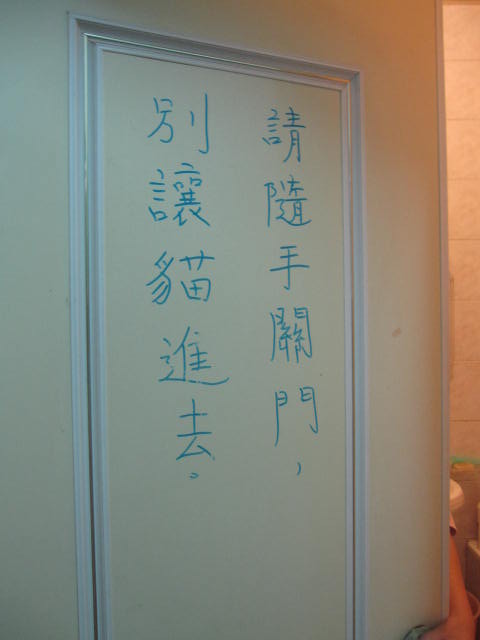 請隨手關門，
別讓貓進去。